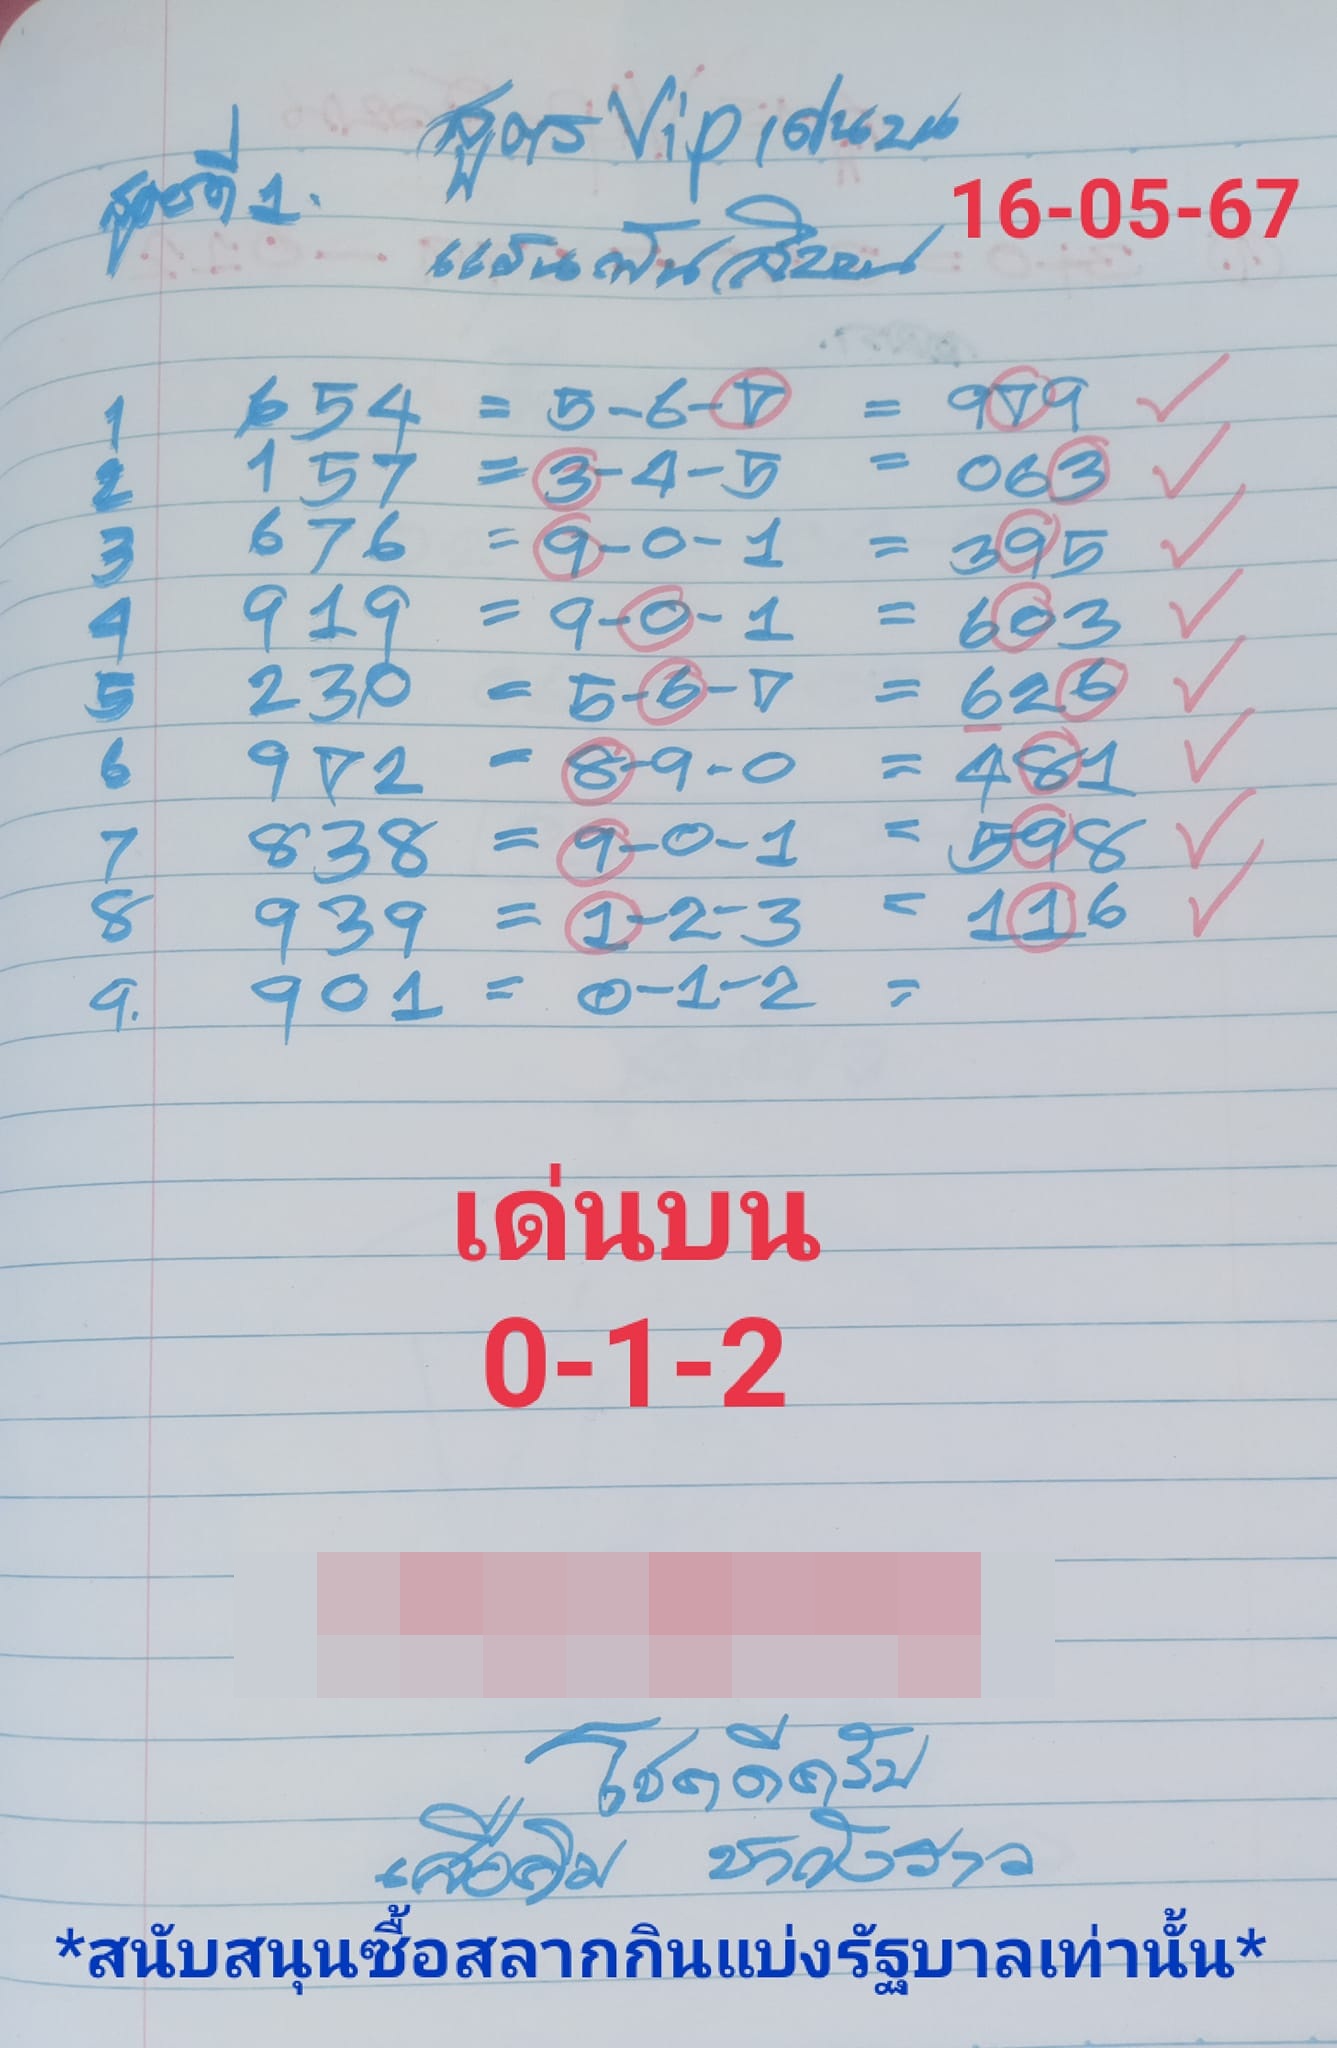 สูตร Vip เด่นบน
สูตรที่ 1.
16-05-67
1 654 = 5-6-7 = 979
2 157 = 3-4-5 = 063
3 676 = 9-0-1 = 395
4 919 = 9-0-1 = 603
5 230 = 5-6-7 = 626
6 972 = 8-9-0 = 481
7 838 = 9-0-1 = 598
8 939 = 1-2-3 = 116
9. 901 = 0-1-2 =
เด่นบน
0-1-2
โชคดีครับ
*สนับสนุนซื้อสลากกินแบ่งรัฐบาลเท่านั้น*